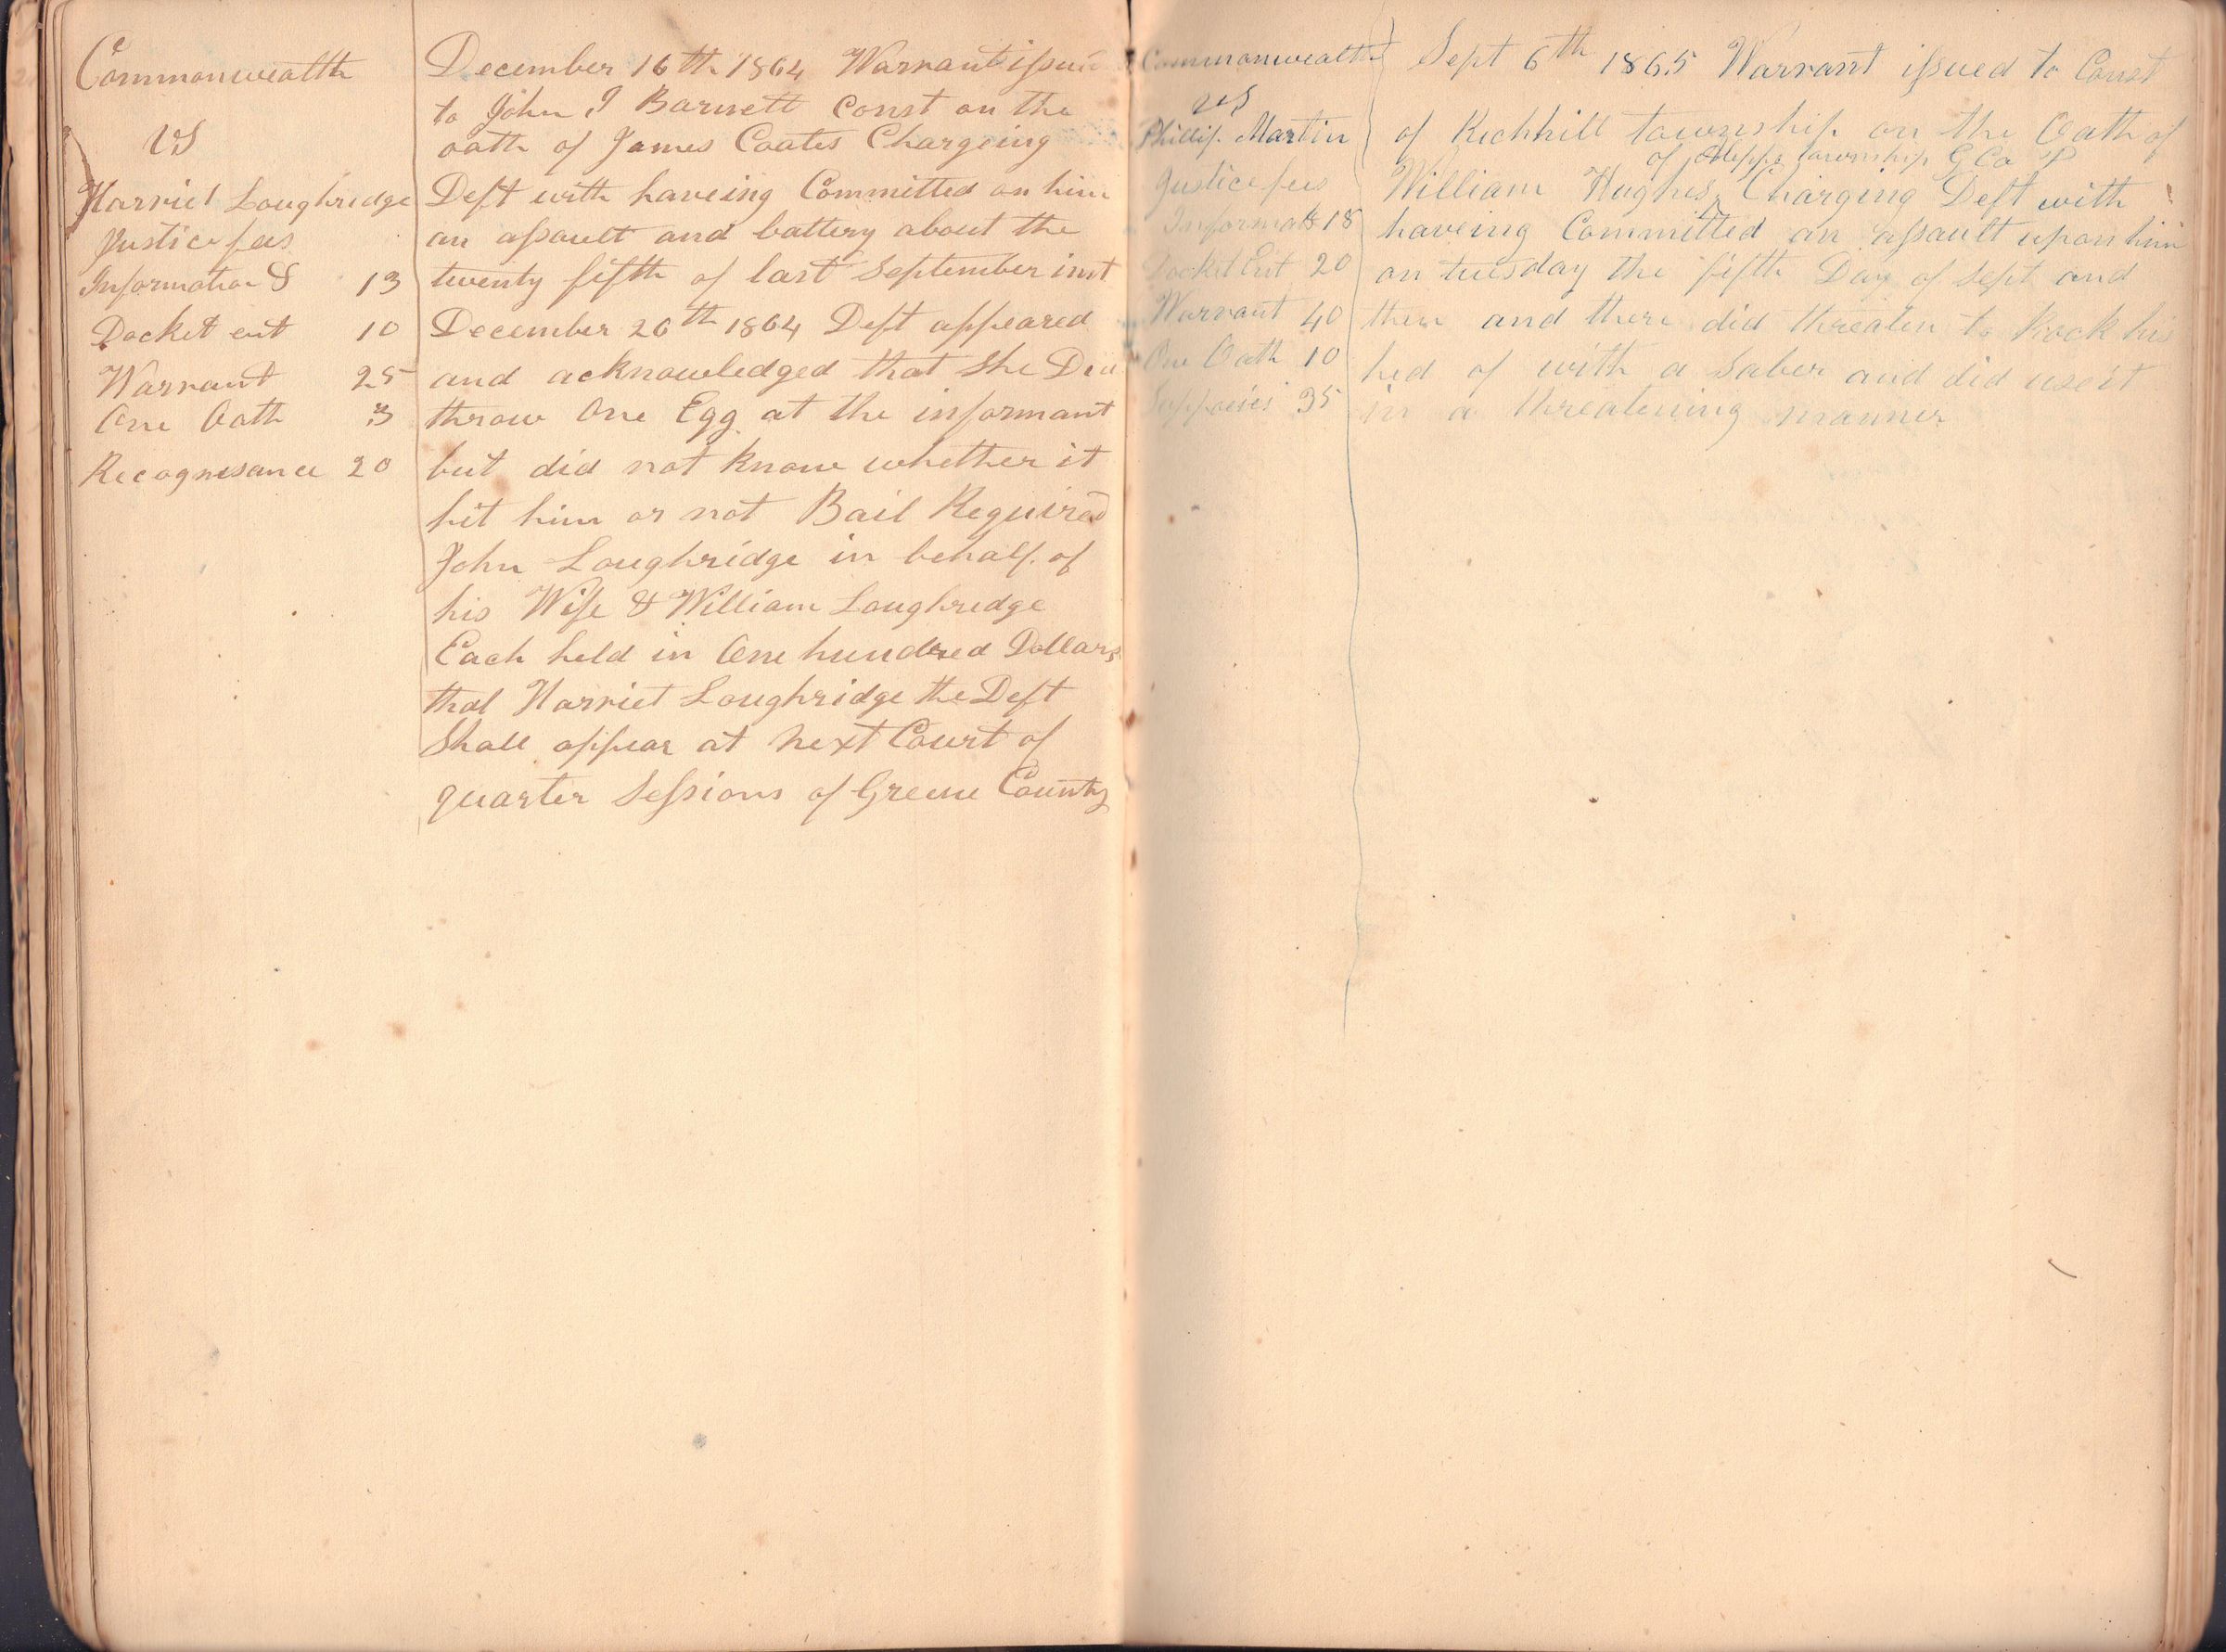 Commonwealth
vs
Harriet Loughridge
Justice fees
Information &  13
Docket ent  10
Warrant  25
One Oath  3
Recognisance  20
December 16th 1864 Warrant issued
to John I Barnett Const on the
oath of James Coates Chargeing
Deft with haveing Committed on him
an assault and battery about the
twenty fifth of last September inst
December 26th 1864 Deft appeared
and acknowledged that She Did
throw One Egg at the informant
but did not know whether it
hit him or not Bail Required
John Loughridge in behalf of
his Wife & William Loughridge
Each held in One hundred Dollars
that Harriet Loughridge the Deft
Shall appear at next Court of
quarter Sessions of Greene County
Commonwealth
vs
Phillip Martin
Justice fees
Informat  18
Docket Ent  20
Warrant  40
One Oath  10
35
Sept 6th 1865 Warrant issued to Const
of Richhill township on the Oath of
of Aleppo township G Co P
William Hughes Charging Deft with
haveing Committed an assault upon him
on tuesday the fifth Day of Sept and
then and there did threaten to Knock his
hed of with a Saber and did use it
in a threatening manner